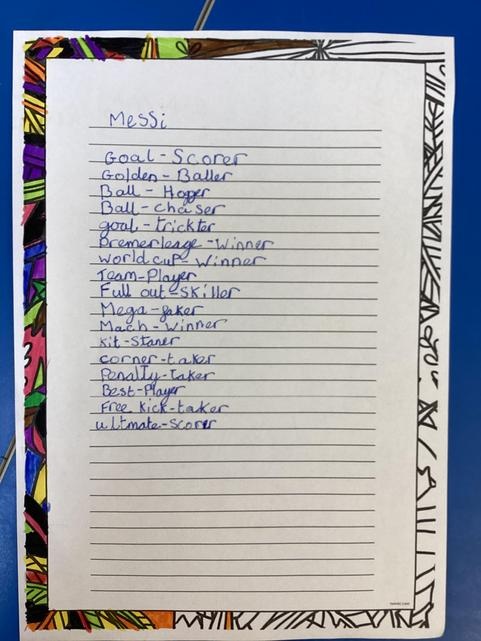 Messi
Goal-Scorer
Golden-Baller
Ball-Hogger
Ball-chaser
goal-trickter
Premerleage-Winner
World cup-Winner
Team-Player
Full out-Skiller
Mega-faker
Mach-Winner
Kit-Staner
corner-taker
Penalty-taker
Best-Player
Free kick-taker
ultmate-Scorer